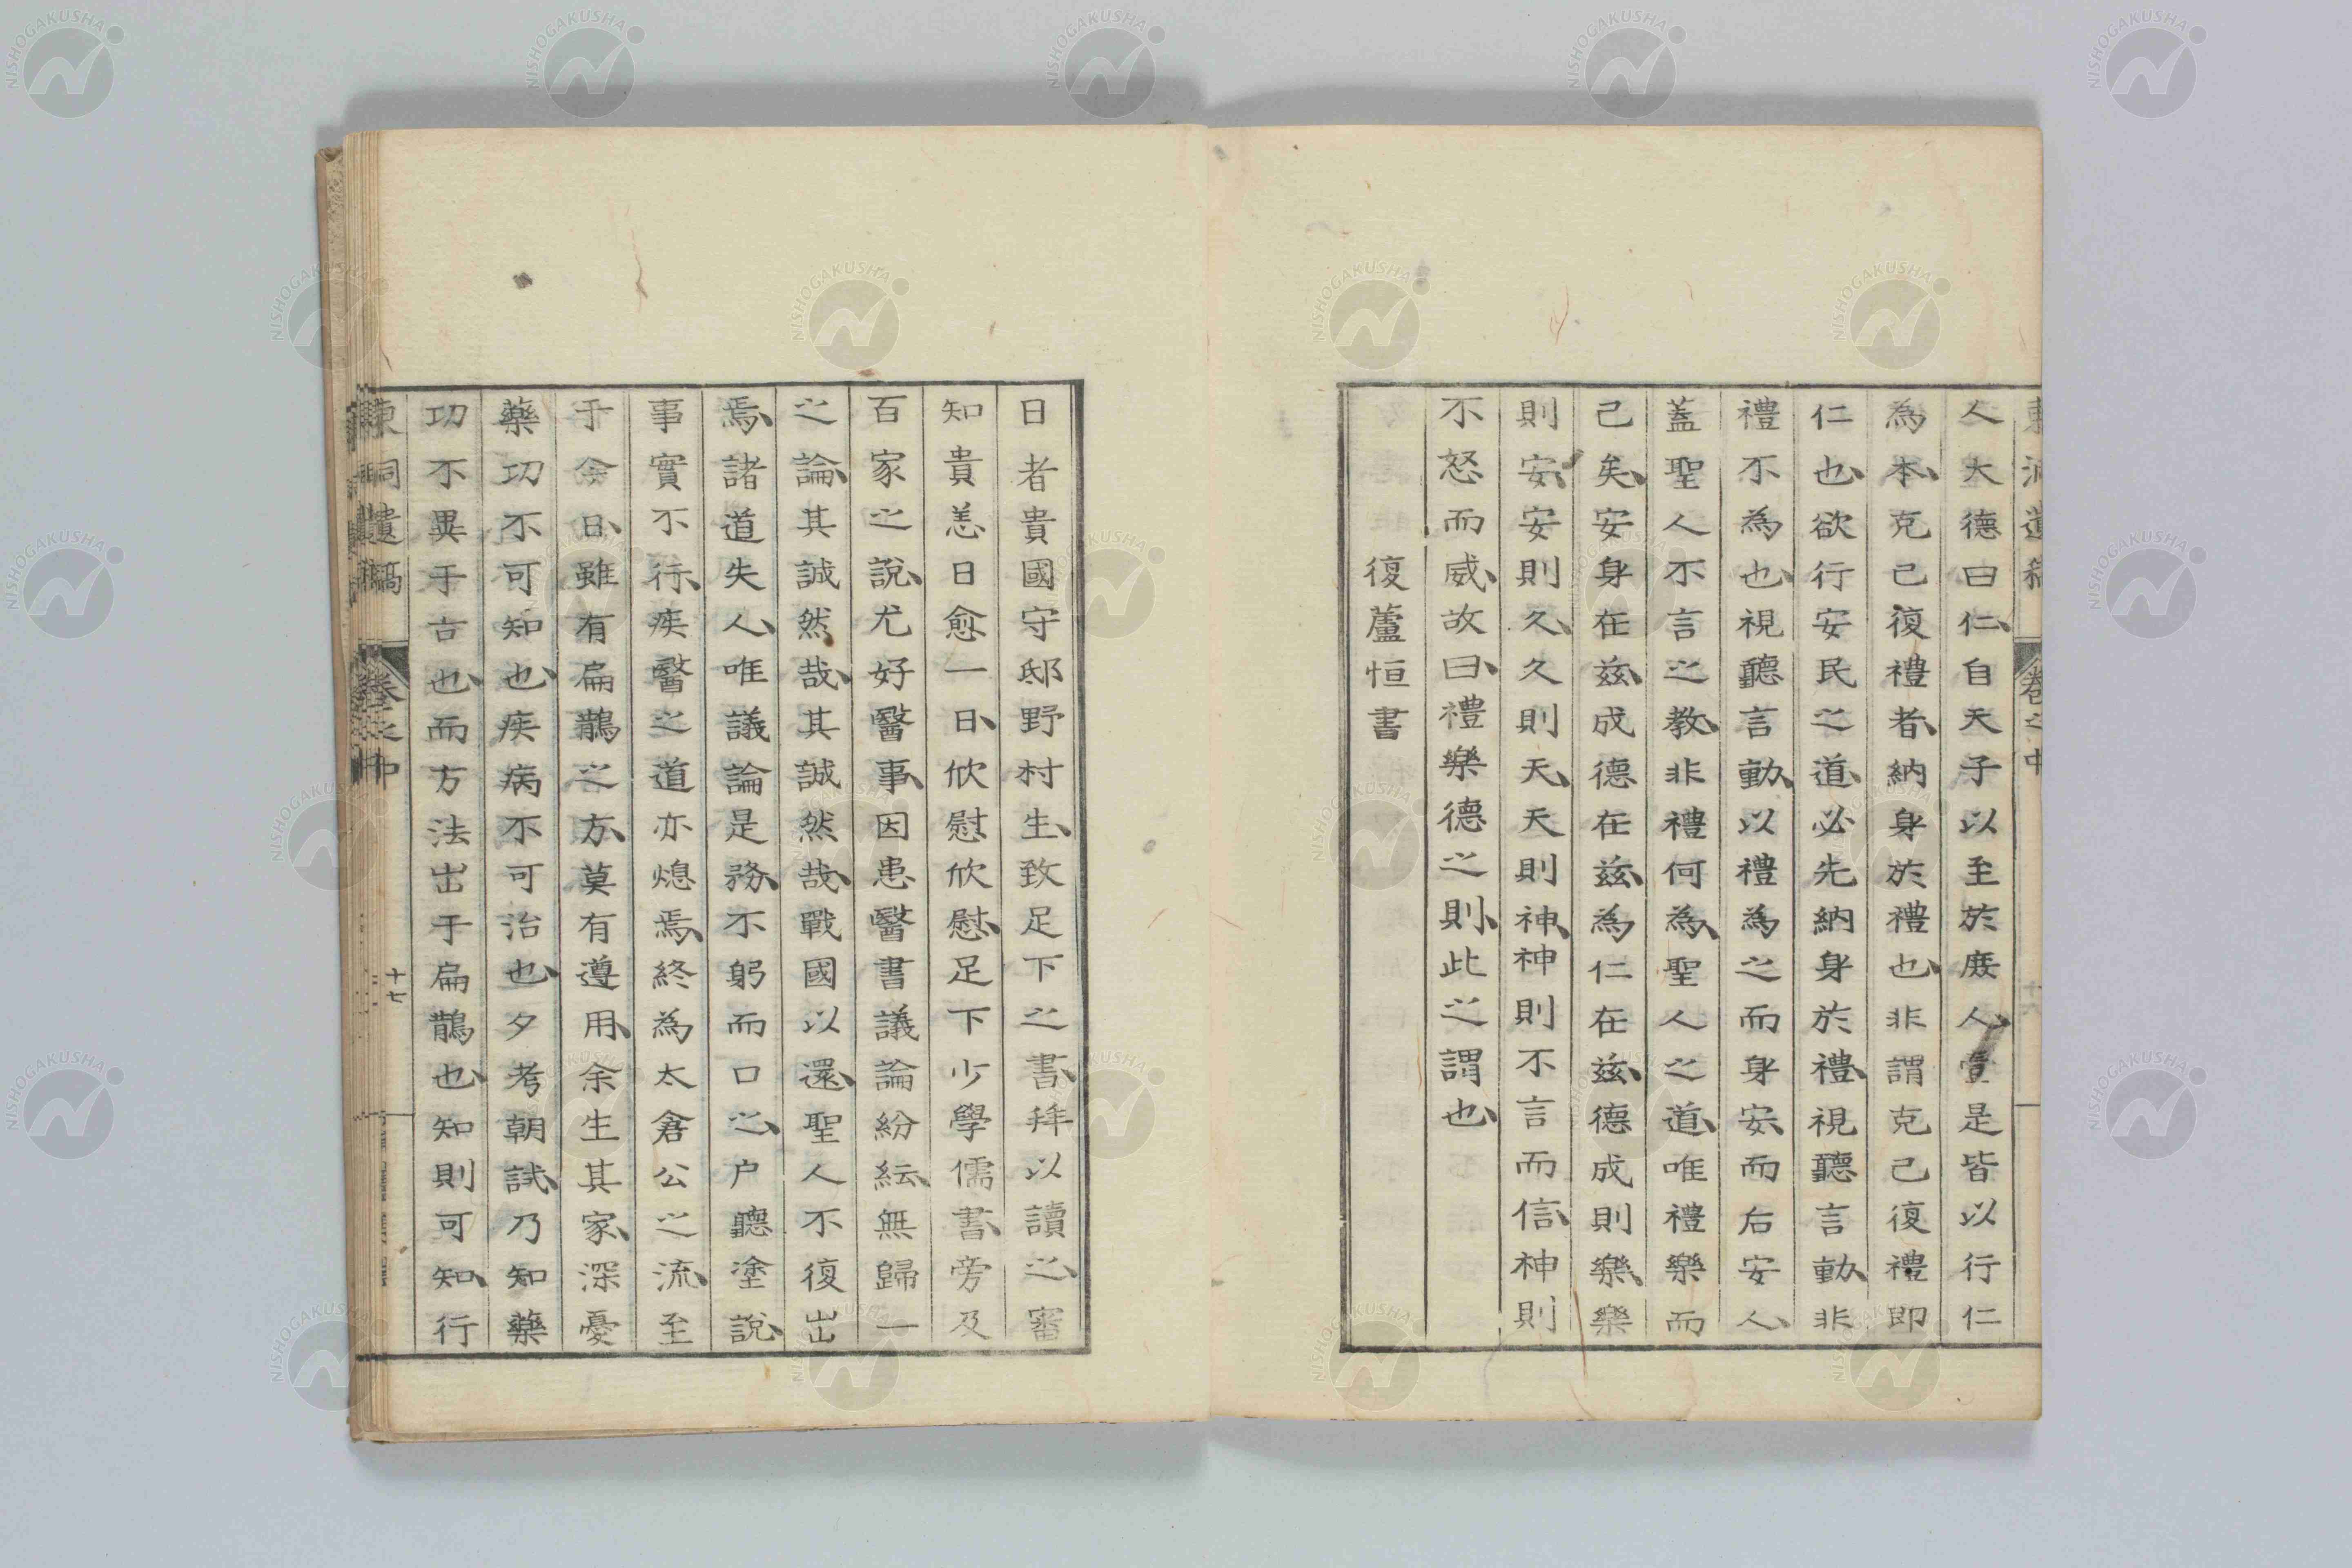 人大德曰仁、自天子以至於庻人、壹是皆以行仁
為本、克己復禮者、納身於禮也、非謂克己復禮即
仁也、欲行安民之道、必先納身於禮、視聽言動、非
禮不為也、視聽言動、以禮為之而身安、而后安人、
蓋聖人不言之教、非禮何為、聖人之道、唯禮樂而
己矣、安身在兹、成德在兹、為仁在兹、德成則樂、樂
則安、安則久、久則天、天則神、神則不言而信、神則
不怒而威、故曰、禮樂德之則、此之謂也、
復蘆恒書
日者貴國守邸野村生、致足下之書、拜以讀之、審
知貴恙日愈一日、欣慰欣慰、足下少學儒書、旁及
百家之說、尤好醫事、因患醫書議論紛紜、無歸一
之論、其誠然哉、其誠然哉、戰國以還、聖人不復出
焉、諸道失人、唯議論是務、不躬而口之、户聽塗說、
事實不行、疾醫之道亦熄焉、終為太倉公之流、至
于今日、雖有扁鵲之方、莫有遵用、余生其家、深憂
藥功不可知也、疾病不可治也、夕考朝試、乃知藥
功不異于古也、而方法出于扁鵲也、知則可知、行
東洞遺稿 卷之中 十七
NISHOGAKUSHA